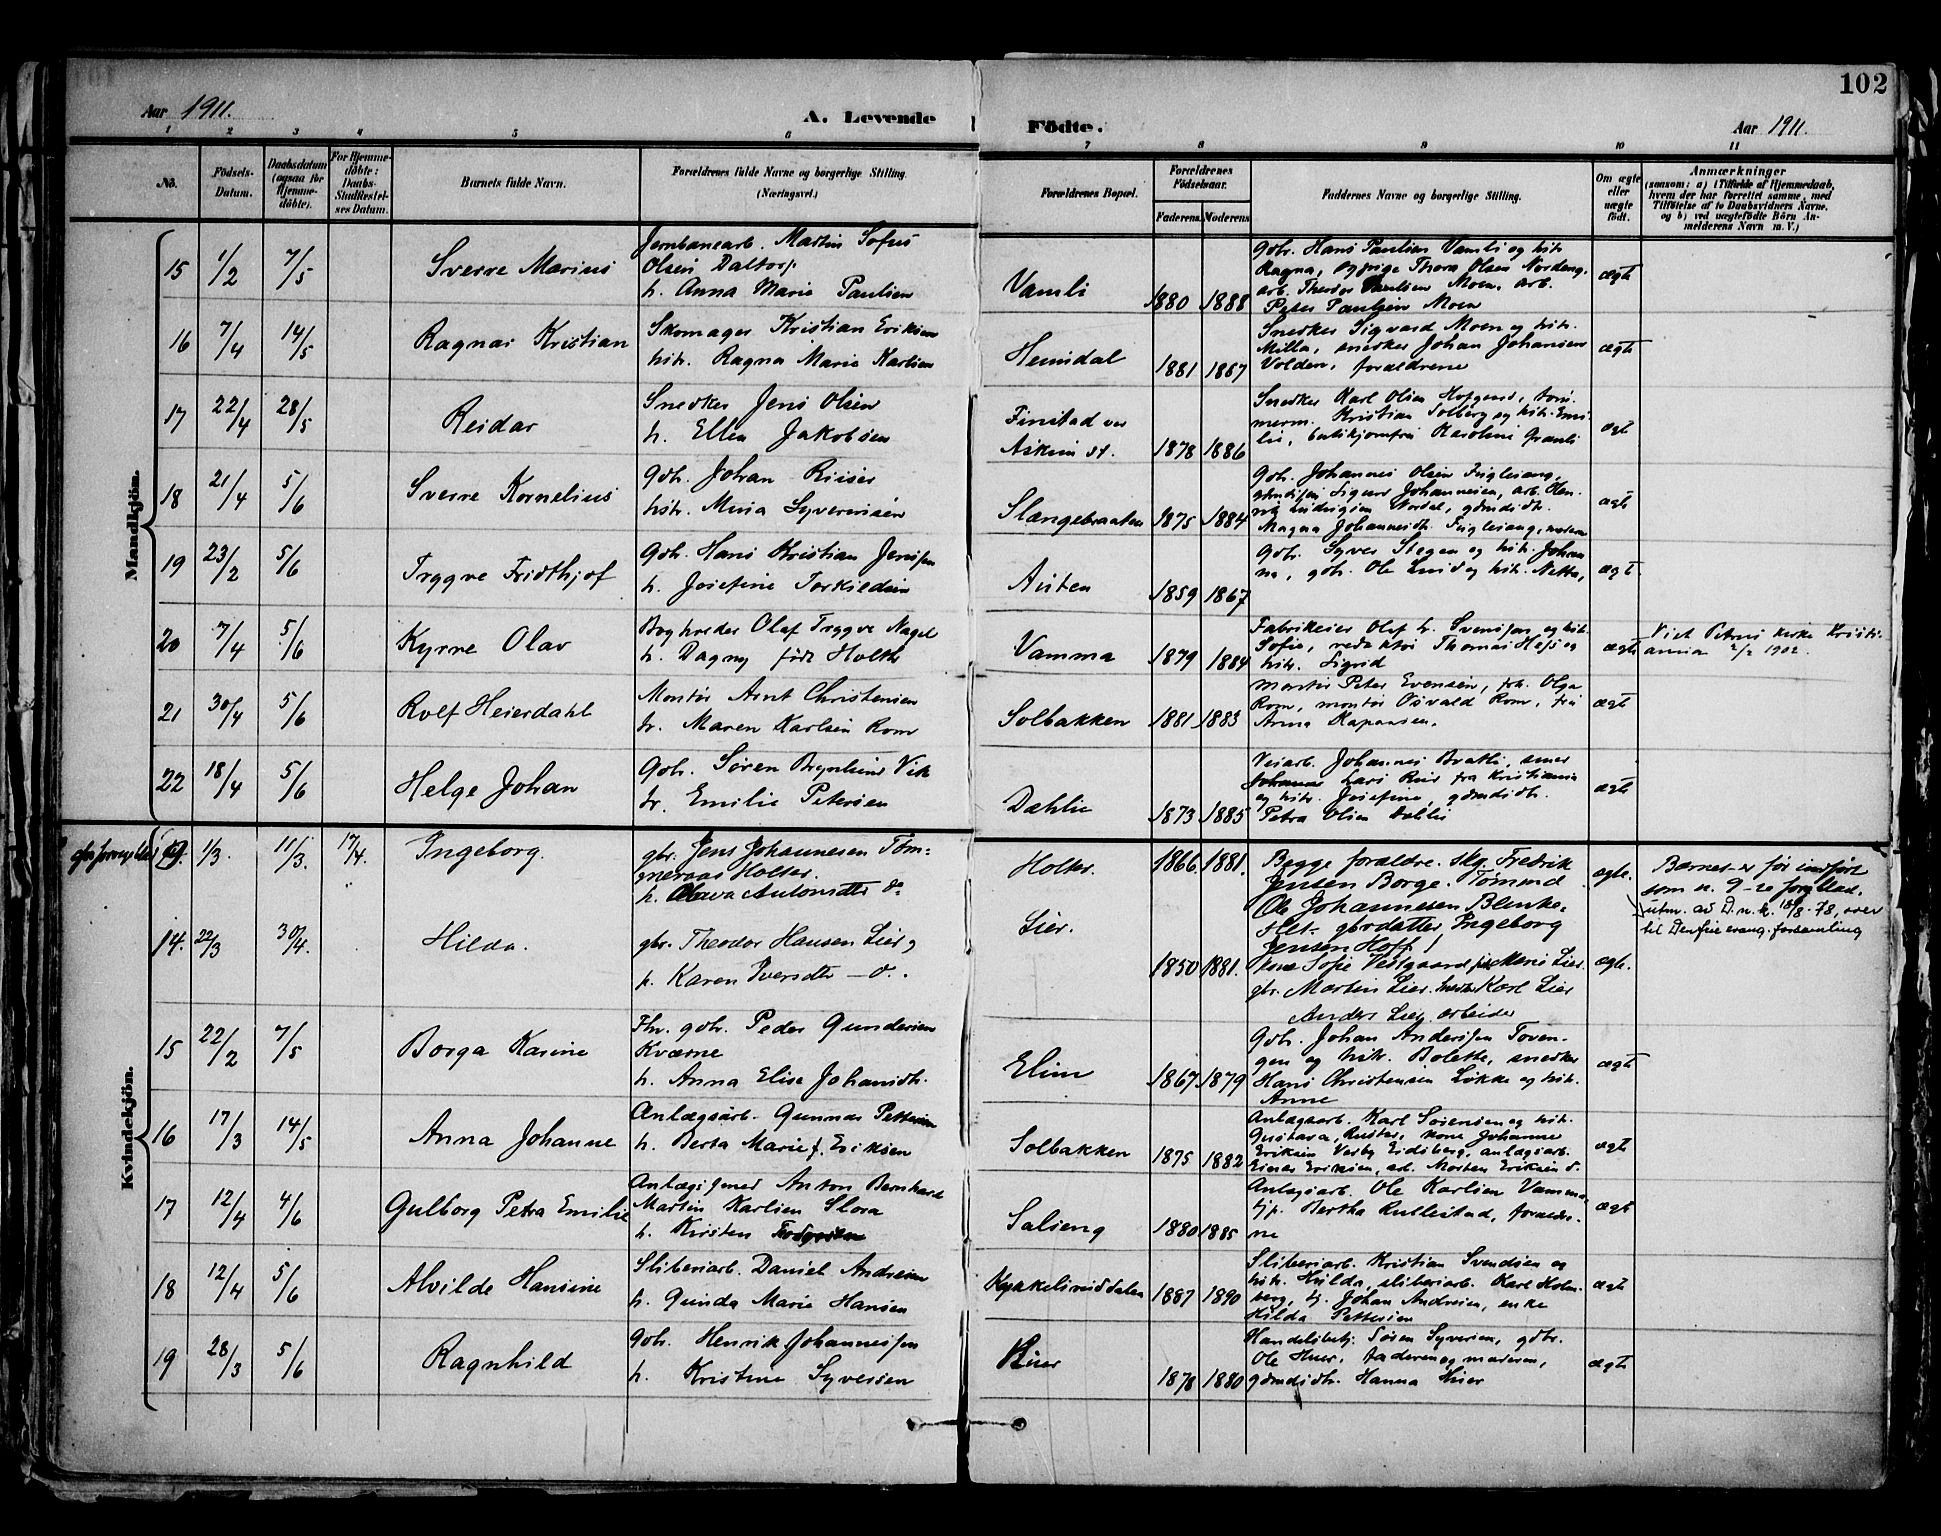 102
Aar 1911.
A. Levende
Födte.
Aar 1911.
1 2 3 4 5 6 7 8 9 10 11
No.
Födsels-
Datum.
Daabsdatum
(ogsaa for
Hjemme-
döbte).
For Hjemme-
döbte:
Daabs-
Barnets fulde Navn.
Forældrenes fulde Navne og borgerlige Stilling.
(Næringsvei.)
Forældrenes Bopæl.
Forældrenes
Födselsaar.
Faderens. Moderens
Faddernes Navne og borgerlige Stilling.
Om ægte
eller
uægte
födt.
Anmærkninger
(saasom: a) i Tilfælde af Hjemmedaab,
hvem der har forrettet samme, med
Tilföielse af to Daabsvidners Navne.
og b) ved uægtefödte Börn An-
melderens Navn m. V.)
Mandkjön.
15 1/2 7/5 Sverre Marius
Jernbanearb. Martin Sofus
Olsen Daltorp
h. Anna Marie Paulsen
Vamli 1880 1888
Gbr. Hans Paulsen Vamli og hstr.
Ragna, og pige Thora Olsen Nordeng,
arb. Theodor Paulsen Moen, arb.
Peter Paulsen Moen
ægte
16 7/4 14/5 Ragnar Kristian
Skomager Kristian Eriksen
hstr. Ragna Marie Karlsen
Heimdal 1881 1887
Snedker Sigvard Moen og hstr.
Milla, snedker Johan Johansen
Volden, forældrene
ægte
17 22/4 28/5 Reidar
Snedker Jens Olsen
h. Ellen Jakobsen
Finstad ved
Askim st. 1878 1886
Snedker Karl Olsen Hofgaard, tøm-
merm. Kristian Solberg og hstr. Emi-
lie, butikjomfru Karoline Granli
ægt
18 21/4 5/6 Sverre Kornelius
Gbr. Johan Riiser
hstr. Mina Syvertsen
Slangebraaten 1875 1884
Gbr. Johannes Olsen Fugleiang,
ægt
19 23/2 5/6 Tryggve Fridthjof
Gbr. Hans Kristian Jensen
h. Josefine Torkildsen
Austen 1859 1867
Gbr. Syver Stegen og hstr. Johan-
na, gbr. Ole Lund og hstr. Netta,
ægt
20 7/4 5/6 Kyrre Olav
Bogholder Olaf Tryggve Nagel
h. Dagny født Holth
Vamma 1879 1884
Fabrikeier Olaf h. Svensen og hstr.
Sofie, redaktør Thomas Høys og
hstr. Sigrid
ægte
Viet Petrus kirke Kristi-
ania 2/2 1902.
21 30/4 5/6 Rolf Heierdahl
Montør Arnt Christensen
h. Maren Karlsen Rom
Solbakken 1881 1883
montør Peter Evensen, frk. Olga
Rom, montør Osvald Rom, frk.
Anna Kaspersen.
ægt
22 18/4 5/6 Helge Johan
Gbr. Søren Brynhins Vik
h. Emilie Petersen
Dæhlie 1873 1885
Veiarb. Johannes Bratli,
Lars Rud fra Kristiania
og hstr. Josefine, gdmdsdtr.
Petra Olsen Dæhlie
ægte
Kvindekjön.
19. 1/3. 11/3. 17/4. Ingeborg.
gbr. Jens Johannesen Tøm-
meraas Holter.
h. Olava Antonsdtr do
Holter. 1866. 1881.
Begge forældre. skg. Fredrik
Jensen Borge. Tømmd
Ole Johannesen Blenke-
Hlt. gbrdatter Ingeborg
Jensen Hoff
ægte.
Barnet er før indført
som n. 9 - se forr. blad.
utm. av D.n.k. 18/8-78, over
til Den frie evang. forsamling
14. 22/3 30/4. Hilda.
gbr. Theodor Hansen Lier,
h. Karen Iversdtr - do.
Lier. 1850 1881.
kone Sofie Vestgaard, pike Marie Lier.
gbr. Martin Lier. snedker Karl Lier
Anders Lier, arbeider
ægte.
15 22/2 7/5 Borga Karine
Fhv. gbr. Peder Gundersen
Kværne
h. Anna Elise Johansdtr.
Elim 1867 1879
Gbr. Johan Andersen Toven-
gen og hstr. Bolette, snedker
Hans Christensen Løkke og hstr.
Anne
ægte
16 17/3 14/5 Anna Johanne
Anlægsarb. Gunnar Pettersen
h. Berta Marie f. Eriksen
Solbakken 1875 1882
Anlægsarb. Karl Sørensen og hstr.
Gustava, Rustad, kone Johanne
Eriksen Verby Eidsberg, anlægsarb.
Einar Eriksen, arb. Morten Eriksen d.
ægt
17 12/4 4/6 Gulborg Petra Emilie
Anlægssmed Anton Bernhard
Martin Karlsen Slora
h. Kirsten
Salseng 1880 1885
Anlægsarb. Ole Karlsen Vamma,
tjp. Bertha Rullestad, forældre-
ne
ægt
18 12/4 5/6 Alvilde Hansine
Sliberiarb. Daniel Andresen
h. Gunda Marie Hansen
Kykkelsruddalen 1887 1890
Sliberiarb. Kristian Svendsen og
hstr. Hilda, sliberiarb. Karl Holm-
berg, tj. Johan Andresen, enke
Hilda Pettersen
ægt
19 28/3 5/6 Ragnhild
Gbr. Henrik Johannessen
h. Kristine Syversen
Huer 1878 1880
Handelsbetj. Søren Syversen, gbr.
Ole Huer, faderen og moderen,
gdmdsdtr. Hanna Huer
ægte